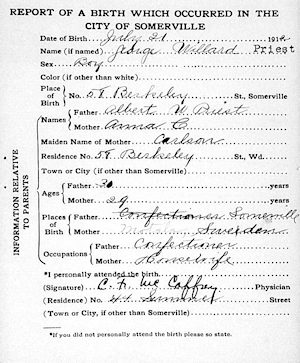 REPORT OF A BIRTH WHICH OCCURRED IN THE
CITY OF SOMERVILLE
Date of Birth July 21 191
Name (if named) George Willard Priest
Sex Boy
Color (if other than white)
Place of Birth No. 58 Berkeley St., Somerville
Names Father Albert W Priest
Mother Anna C.
Maiden Name of Mother Carlson
Residence No. 58 Berkeley St., Wd.
Town or City (if other than Somerville)
INFORMATION RELATIVE TO PARENTS
Ages Father 30 years
Mother 29 years
Places of Birth Father Confectioner Somerville
Mother Sweden
Occupations Father Confectioner
Mother Housewife
*I personally attended the birth.
(Signature) C. F. McCaffrey Physician
(Residence) No. 44 Summer Street
(Town or City, if other than Somerville)
*If you did not personally attend the birth please so state.